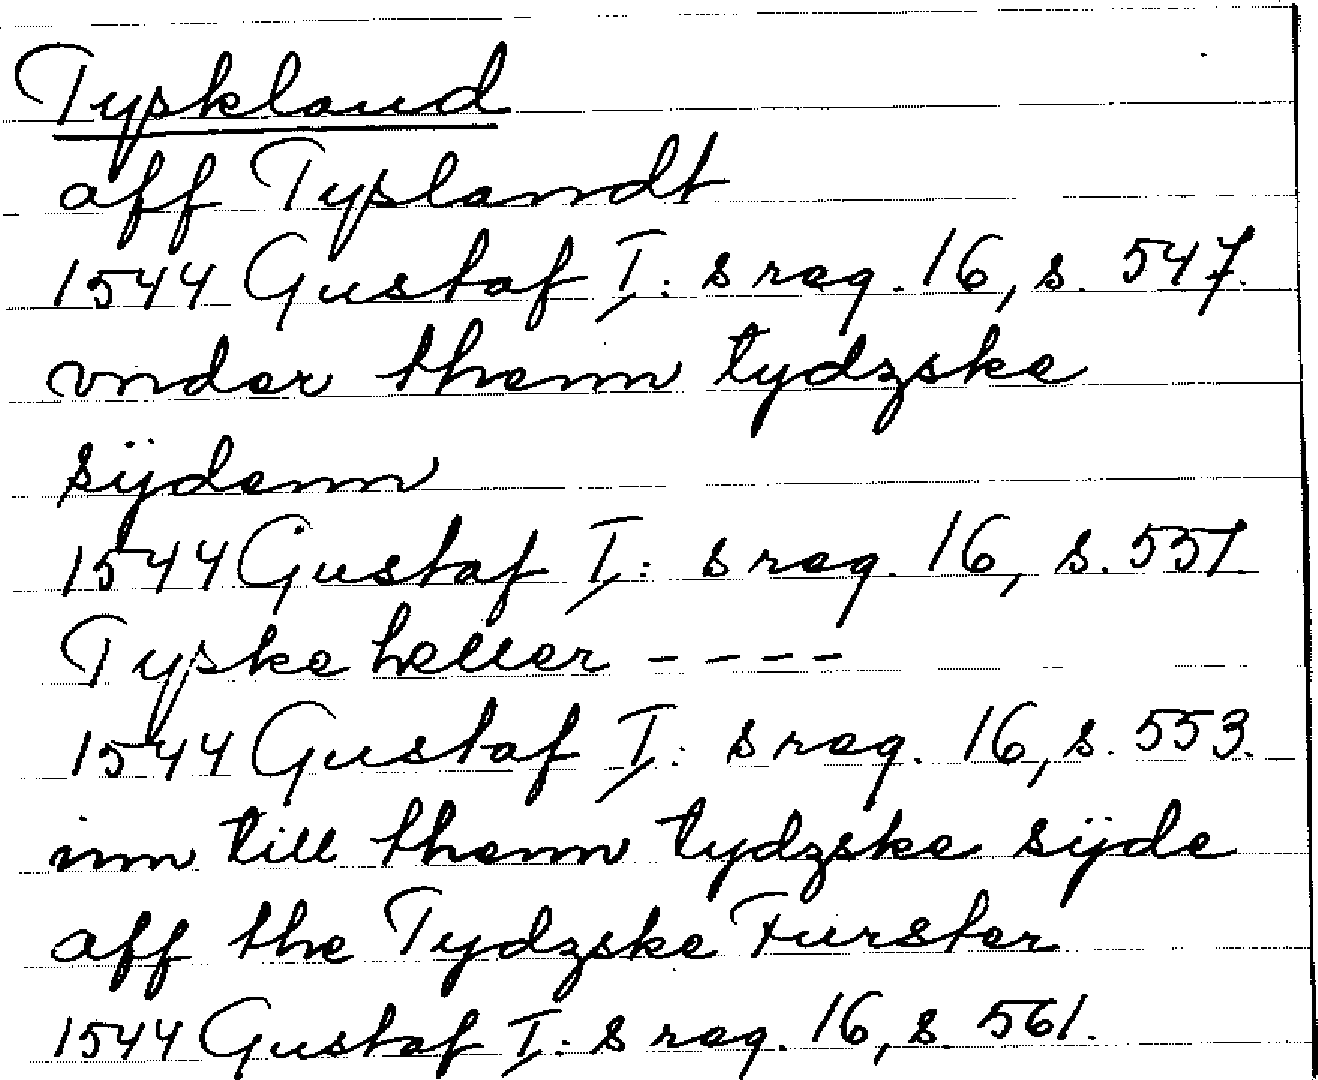 Tyskland
aff Tyslandt
1544 Gustaf I: s reg. 16, s. 547.
vnder thenn tydzske
sijdenn
1544 Gustaf I: s reg. 16, s. 551.
Tyske heller ----
1544 Gustaf I: s reg. 16, s. 553.
inn till thenn tydzske sijde
aff the Tydzske Furster
1544 Gustaf I: s reg. 16, s. 561.